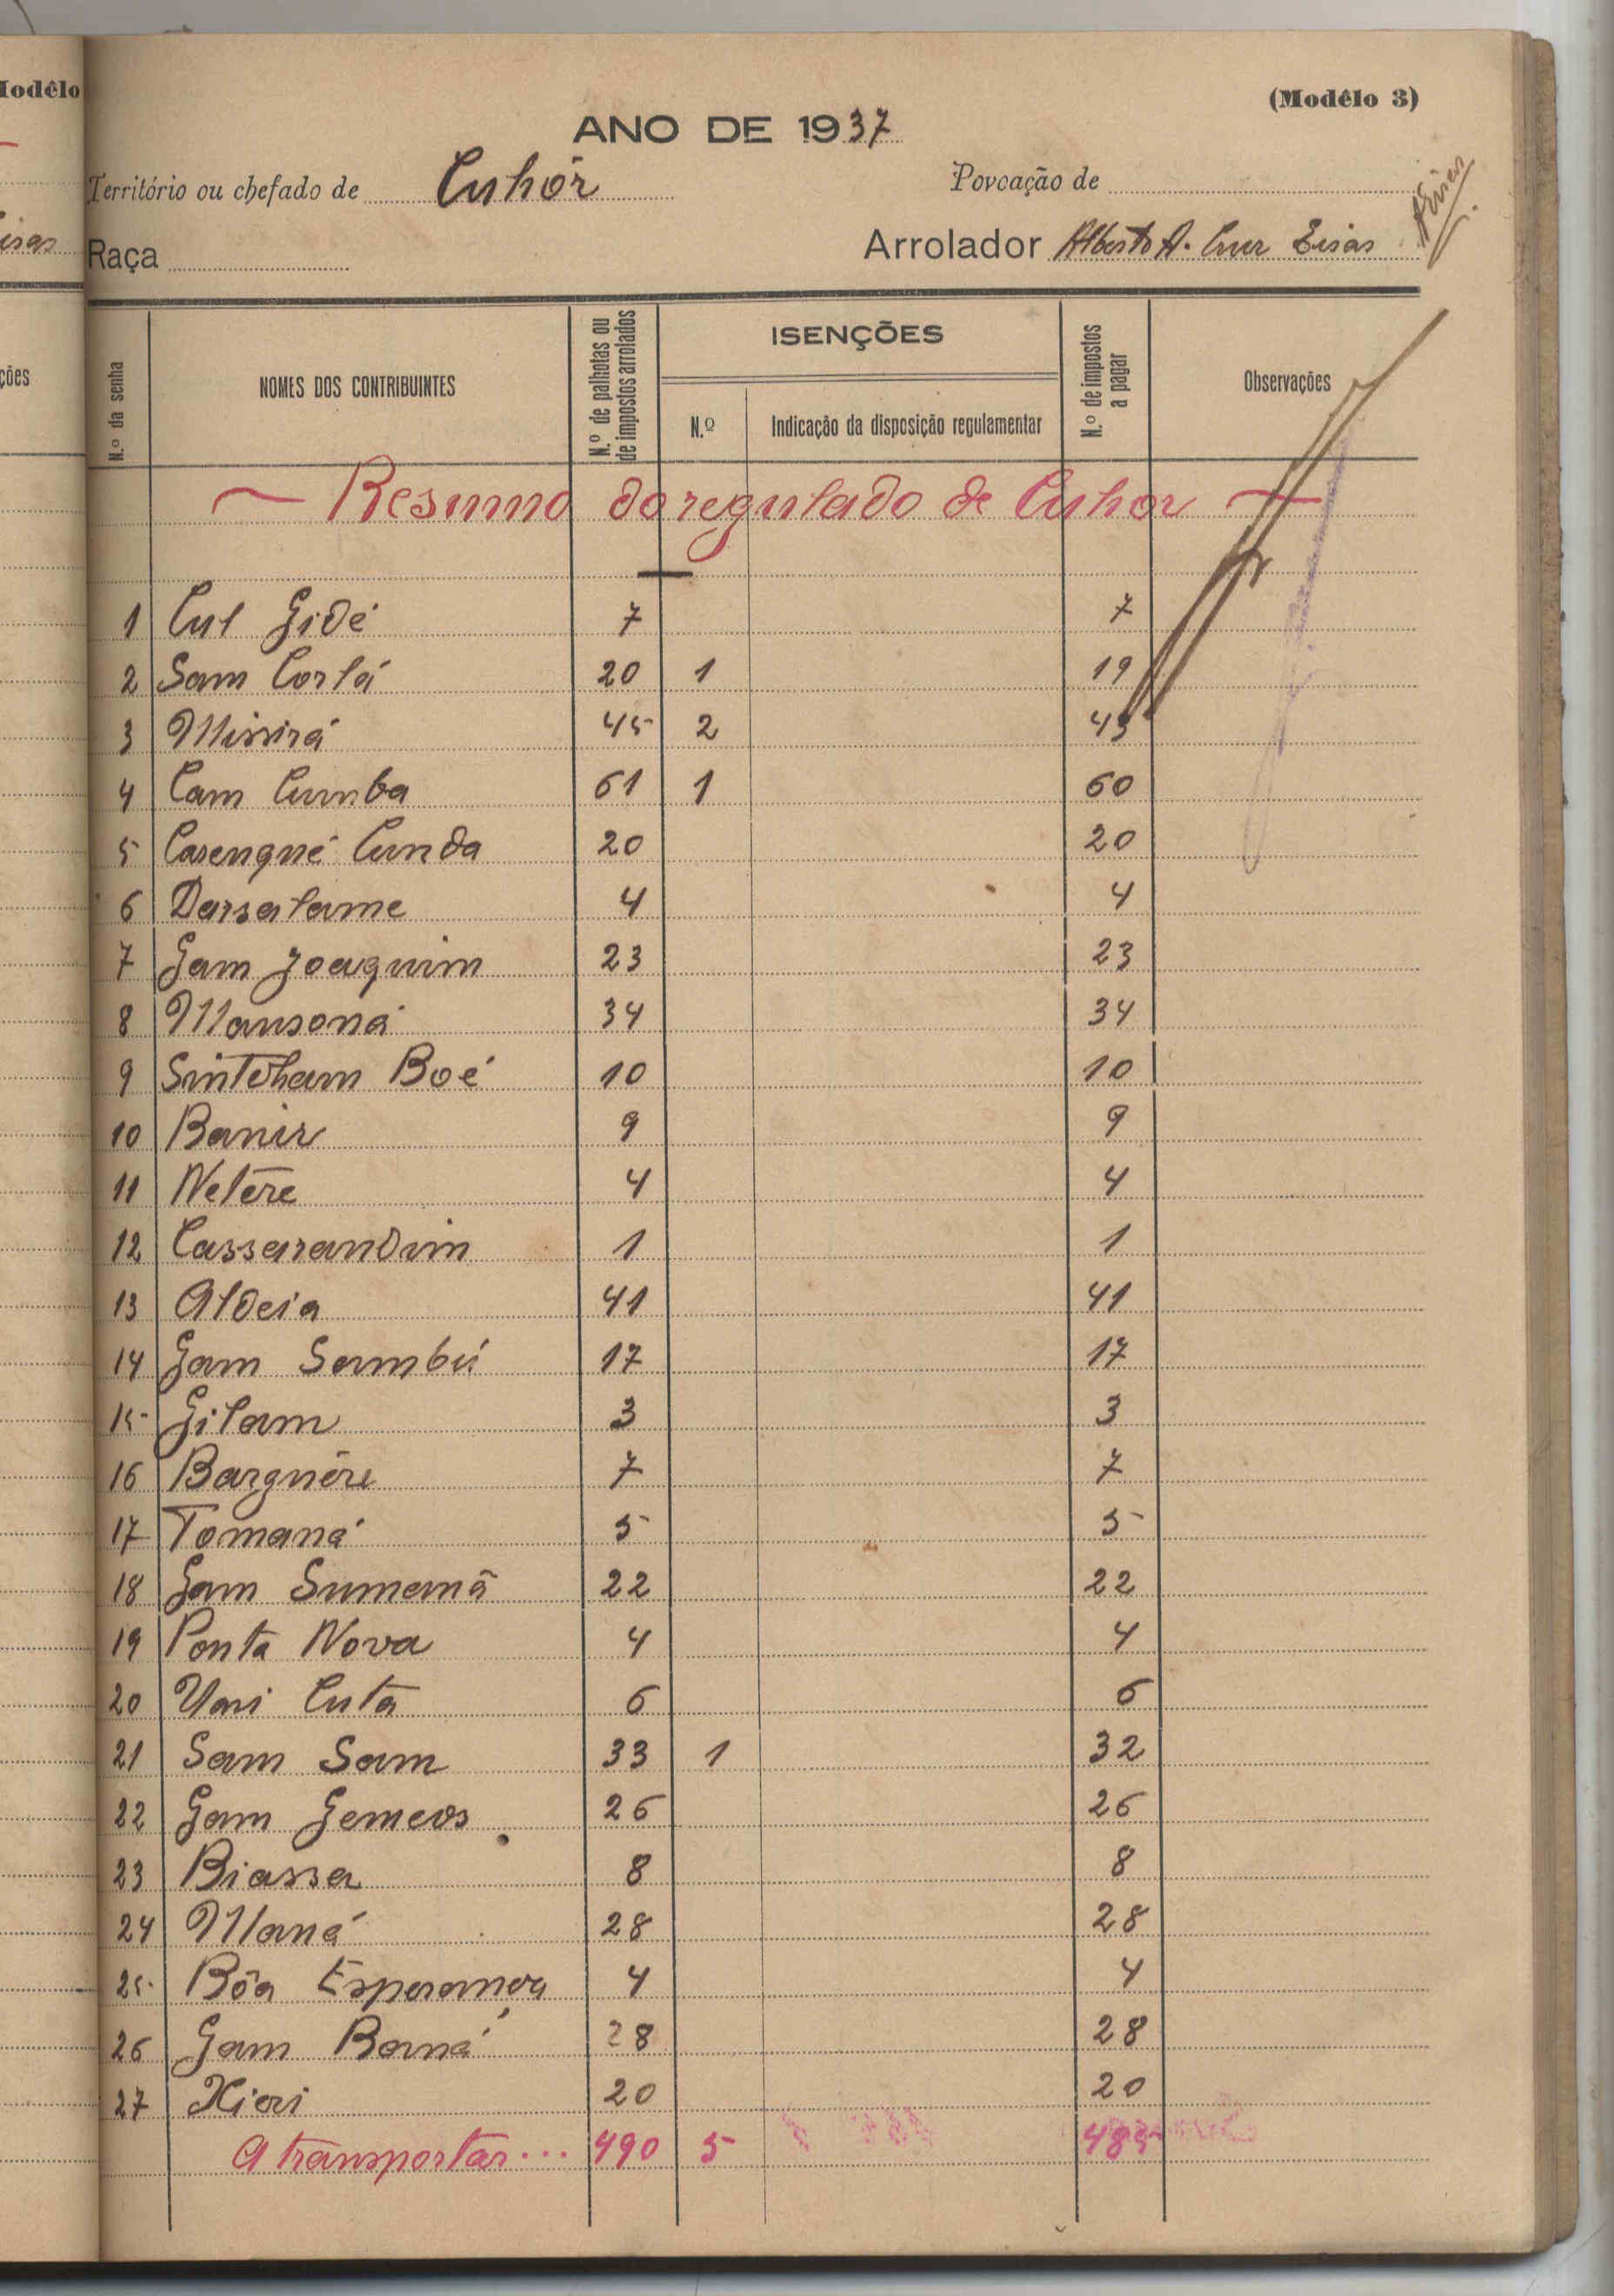 (Modêlo 3)
ANO DE 1937
Território ou chefado de Cuhôr Povoação de
Raça Arrolador Alberto A. Cruz
N.º da senha NOMES DOS CONTRIBUINTES N.º de palhotas ou de impostos arrolados ISENÇÕES N.º Indicação da disposição regulamentar N.º de impostos a pagar Observações
— Resumo do regulado de Cuhor —
1 Cul Gidé 7 7
2 Sam Corlá 20 1 19
3 Missirá 45 2 43
4 Cam Cumba 61 1 60
5 Carengué Cunda 20 20
6 Darsalame 4 4
7 Gam Joaquim 23 23
8 Mansoná 34 34
9 Sintcham Boé 10 10
10 Banir 9 9
11 Netêre 4 4
12 Cassarandim 1 1
13 Aldeia 41 41
14 Gam Sambú 17 17
15 Gilam 3 3
16 Barguére 7 7
17 Tomaná 5 5
18 Gam Sumamã 22 22
19 Ponta Nova 4 4
20 Uni Cuta 6 6
21 Sam Sam 33 1 32
22 Gam Gemeos 26 26
23 Biassa 8 8
24 Maná 28 28
25 Bôa Esperança 4 4
26 Gam Baná 28 28
27 Xieri 20 20
A transportar... 490 5 485
Modêlo
ções